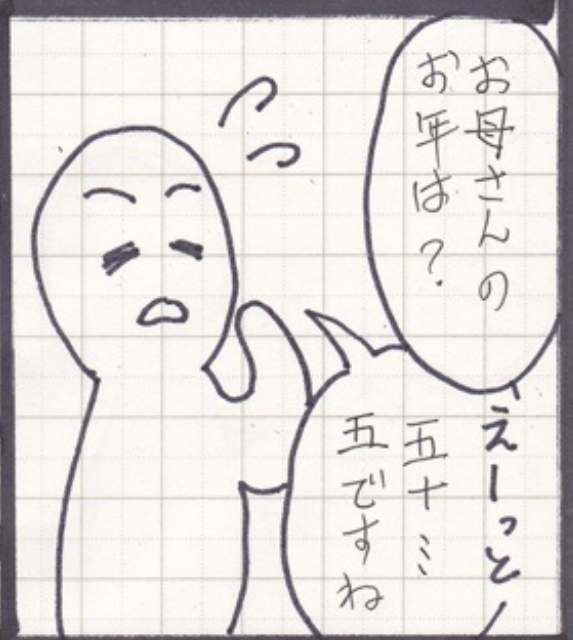 お母さんの
お年は？
えーっと
五十…
五ですね